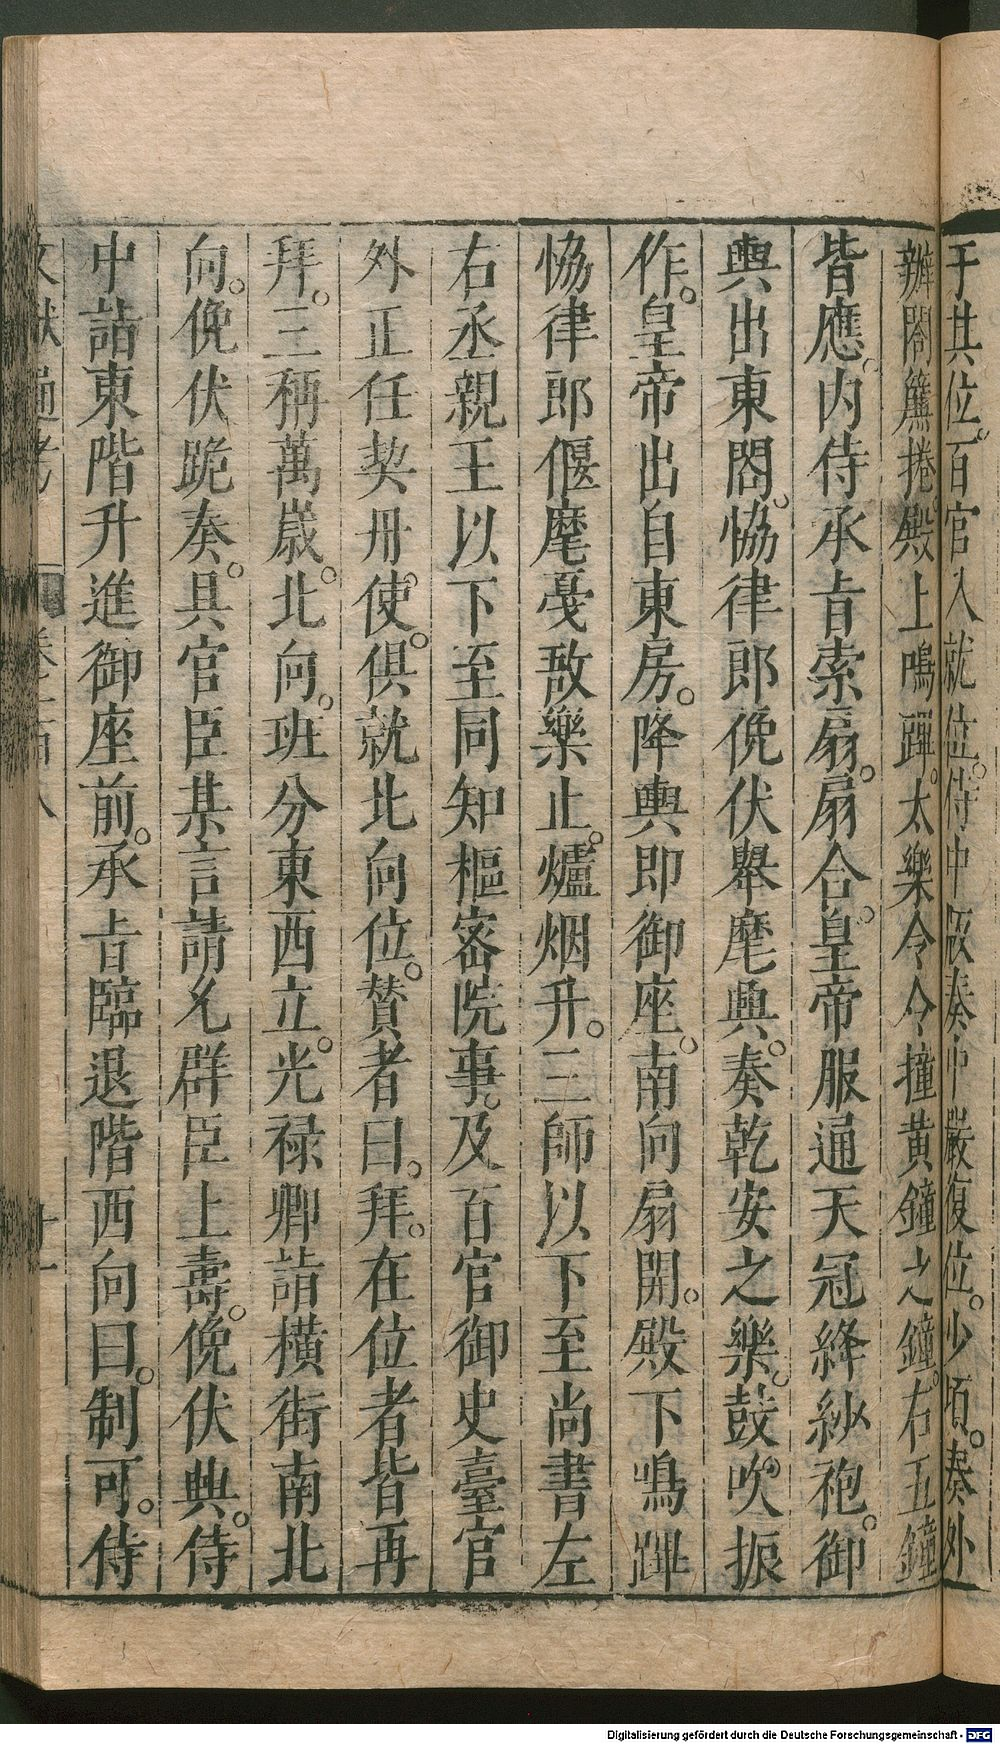 于其位。百官入就位。侍中版奏中嚴復位。少頃。奏外
辦閤簾捲。殿上鳴蹕。太樂令令撞黃鐘之鐘。右五鐘
皆應。內侍承旨索扇。扇合。皇帝服通天冠絳紗袍。御
輿出東閤。協律郎俛伏舉麾興。奏乾安之樂。鼓吹振
作。皇帝出自東房。降輿即御座。南向扇開。殿下鳴蹕
協律郎偃麾戞敔樂止。爐烟升。三師以下至尚書左
右丞親王以下至同知樞密院事。及百官御史臺官
外正任契丹使。俱就北向位。贊者曰。拜。在位者皆再
拜。三稱萬歲。北向。班分東西立。光禄卿詣橫街南北
向。俛伏跪奏。具官臣某言請允群臣上壽。俛伏興。侍
中詣東階升進御座前。承旨臨退階西向曰。制可。侍
文獻通考 卷之一百八 十一
Digitalisierung gefördert durch die Deutsche Forschungsgemeinschaft - DFG